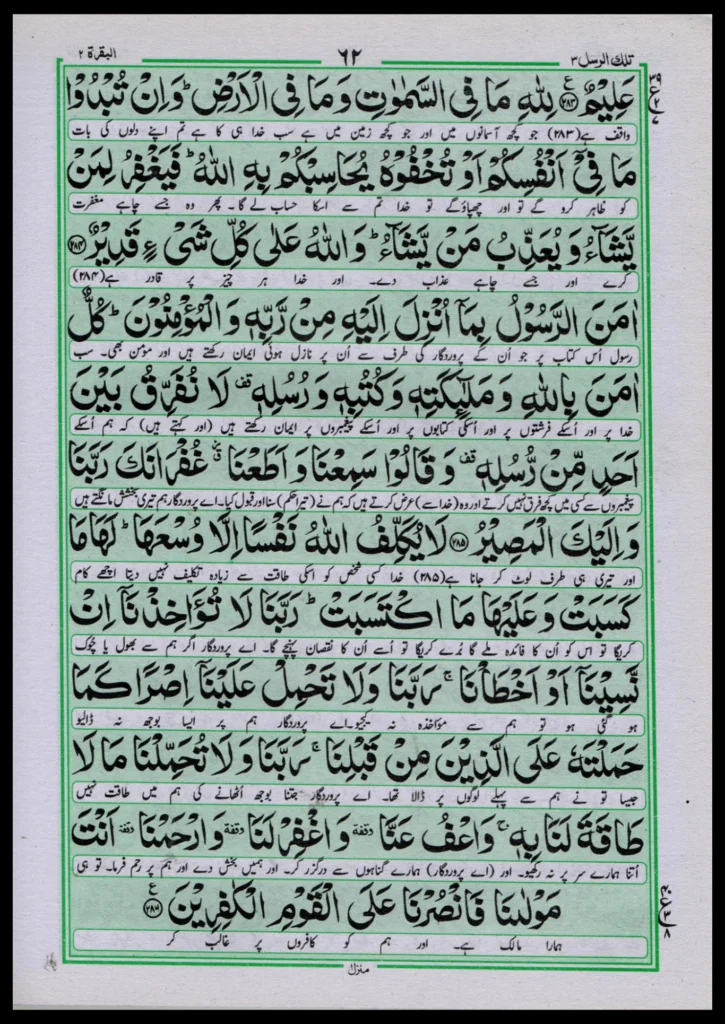 تلك الرسل ٣ ٦٢ البقرة ٢
عَلِيْمٌ ﴿۲۸۳﴾ ع لِلّٰهِ مَا فِى السَّمٰوٰتِ وَمَا فِى الْاَرْضِ ؕ وَاِنْ تُبْدُوْا
واقف ہے (۲۸۳) جو کچھ آسمانوں میں اور جو کچھ زمین میں ہے سب خدا ہی کا ہے تم اپنے دلوں کی بات
مَا فِىْۤ اَنْفُسِكُمْ اَوْ تُخْفُوْهُ يُحَاسِبْكُمْ بِهِ اللّٰهُ ؕ فَيَغْفِرُ لِمَنْ
کو ظاہر کرو گے تو اور چھپاؤ گے تو خدا تم سے اسکا حساب لے گا۔ پھر وہ جسے چاہے مغفرت
يَّشَآءُ وَيُعَذِّبُ مَنْ يَّشَآءُ ؕ وَاللّٰهُ عَلٰى كُلِّ شَىْءٍ قَدِيْرٌ ﴿۲۸۴﴾
کرے اور جسے چاہے عذاب دے۔ اور خدا ہر چیز پر قادر ہے (۲۸۴)
اٰمَنَ الرَّسُوْلُ بِمَاۤ اُنْزِلَ اِلَيْهِ مِنْ رَّبِّهٖ وَالْمُؤْمِنُوْنَ ؕ كُلٌّ
رسول اُس کتاب پر جو اُن کے پروردگار کی طرف سے اُن پر نازل ہوئی ایمان رکھتے ہیں اور مومن بھی۔ سب
اٰمَنَ بِاللّٰهِ وَمَلٰٓئِكَتِهٖ وَكُتُبِهٖ وَرُسُلِهٖ قف لَا نُفَرِّقُ بَيْنَ
خدا پر اور اُسکے فرشتوں پر اور اُسکی کتابوں پر اور اسکے پیغمبروں پر ایمان رکھتے ہیں (اور کہتے ہیں) کہ ہم اُسکے
اَحَدٍ مِّنْ رُّسُلِهٖ قف وَقَالُوْا سَمِعْنَا وَاَطَعْنَا غُفْرَانَكَ رَبَّنَا
پیغمبروں سے کسی میں کچھ فرق نہیں کرتے اور وہ (خدا سے) عرض کرتے ہیں کہ ہم نے (تیرا حکم) سنا اور قبول کیا۔ اے پروردگار ہم تیری بخشش مانگتے ہیں
وَاِلَيْكَ الْمَصِيْرُ ﴿۲۸۵﴾ لَا يُكَلِّفُ اللّٰهُ نَفْسًا اِلَّا وُسْعَهَا ؕ لَهَا مَا
اور تیری ہی طرف لوٹ کر جانا ہے (۲۸۵) خدا کسی شخص کو اسکی طاقت سے زیادہ تکلیف نہیں دیتا اچھے کام
كَسَبَتْ وَعَلَيْهَا مَا اكْتَسَبَتْ ؕ رَبَّنَا لَا تُؤَاخِذْنَاۤ اِنْ
کریگا تو اس کو اُن کا فائدہ ملے گا بُرے کریگا تو اُسے اُن کا نقصان پہنچے گا۔ اے پروردگار اگر ہم سے بھول یا چُوک
نَّسِيْنَاۤ اَوْ اَخْطَاْنَا ۚ رَبَّنَا وَلَا تَحْمِلْ عَلَيْنَاۤ اِصْرًا كَمَا
ہو گئی ہو تو ہم سے مؤاخذہ نہ کیجیو۔ اے پروردگار ہم پر ایسا بوجھ نہ ڈالیو
حَمَلْتَهٗ عَلَى الَّذِيْنَ مِنْ قَبْلِنَا ۚ رَبَّنَا وَلَا تُحَمِّلْنَا مَا لَا
جیسا تو نے ہم سے پہلے لوگوں پر ڈالا تھا۔ اے پروردگار جتنا بوجھ اُٹھانے کی ہم میں طاقت نہیں
طَاقَةَ لَنَا بِهٖ ۚ وَاعْفُ عَنَّا وقفة وَاغْفِرْ لَنَا وقفة وَارْحَمْنَا وقفة اَنْتَ
اُتنا ہمارے سر پر نہ رکھیو۔ اور (اے پروردگار) ہمارے گناہوں سے درگزر کر۔ اور ہمیں بخش دے اور ہم پر رحم فرما۔ تو ہی
مَوْلٰىنَا فَانْصُرْنَا عَلَى الْقَوْمِ الْكٰفِرِيْنَ ﴿۲۸۶﴾ ع
ہمارا مالک ہے۔ اور ہم کو کافروں پر غالب کر
منزل